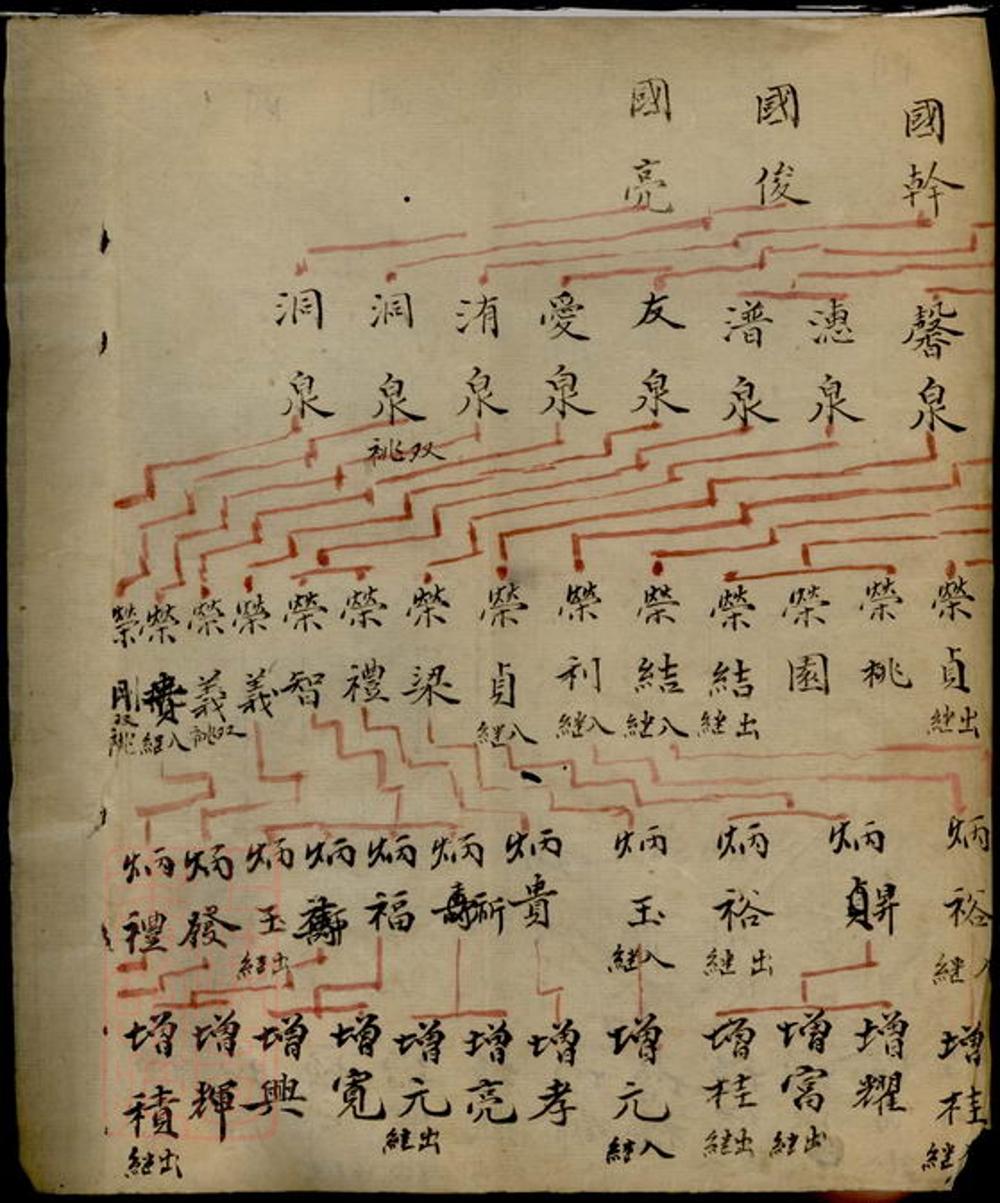 國幹
國俊
國亮
馨泉
潓泉
潽泉
友泉
愛泉
洧泉
洞泉
双祧
洞泉
榮貞
出継
榮桃
榮園
榮結
出継
榮結
入継
榮利
入継
榮貞
入継
榮梁
榮禮
榮智
榮義
榮義
双祧
榮
入継
榮剛
双祧
炳裕
入継
炳昇
炳裕
出継
炳玉
入継
炳貴
炳祈
炳福
炳壽
炳玉
出継
炳發
炳禮
增桂
継
增耀
增富
出継
增桂
出継
增元
入継
增孝
增亮
增元
出継
增寬
增興
增輝
增積
出継